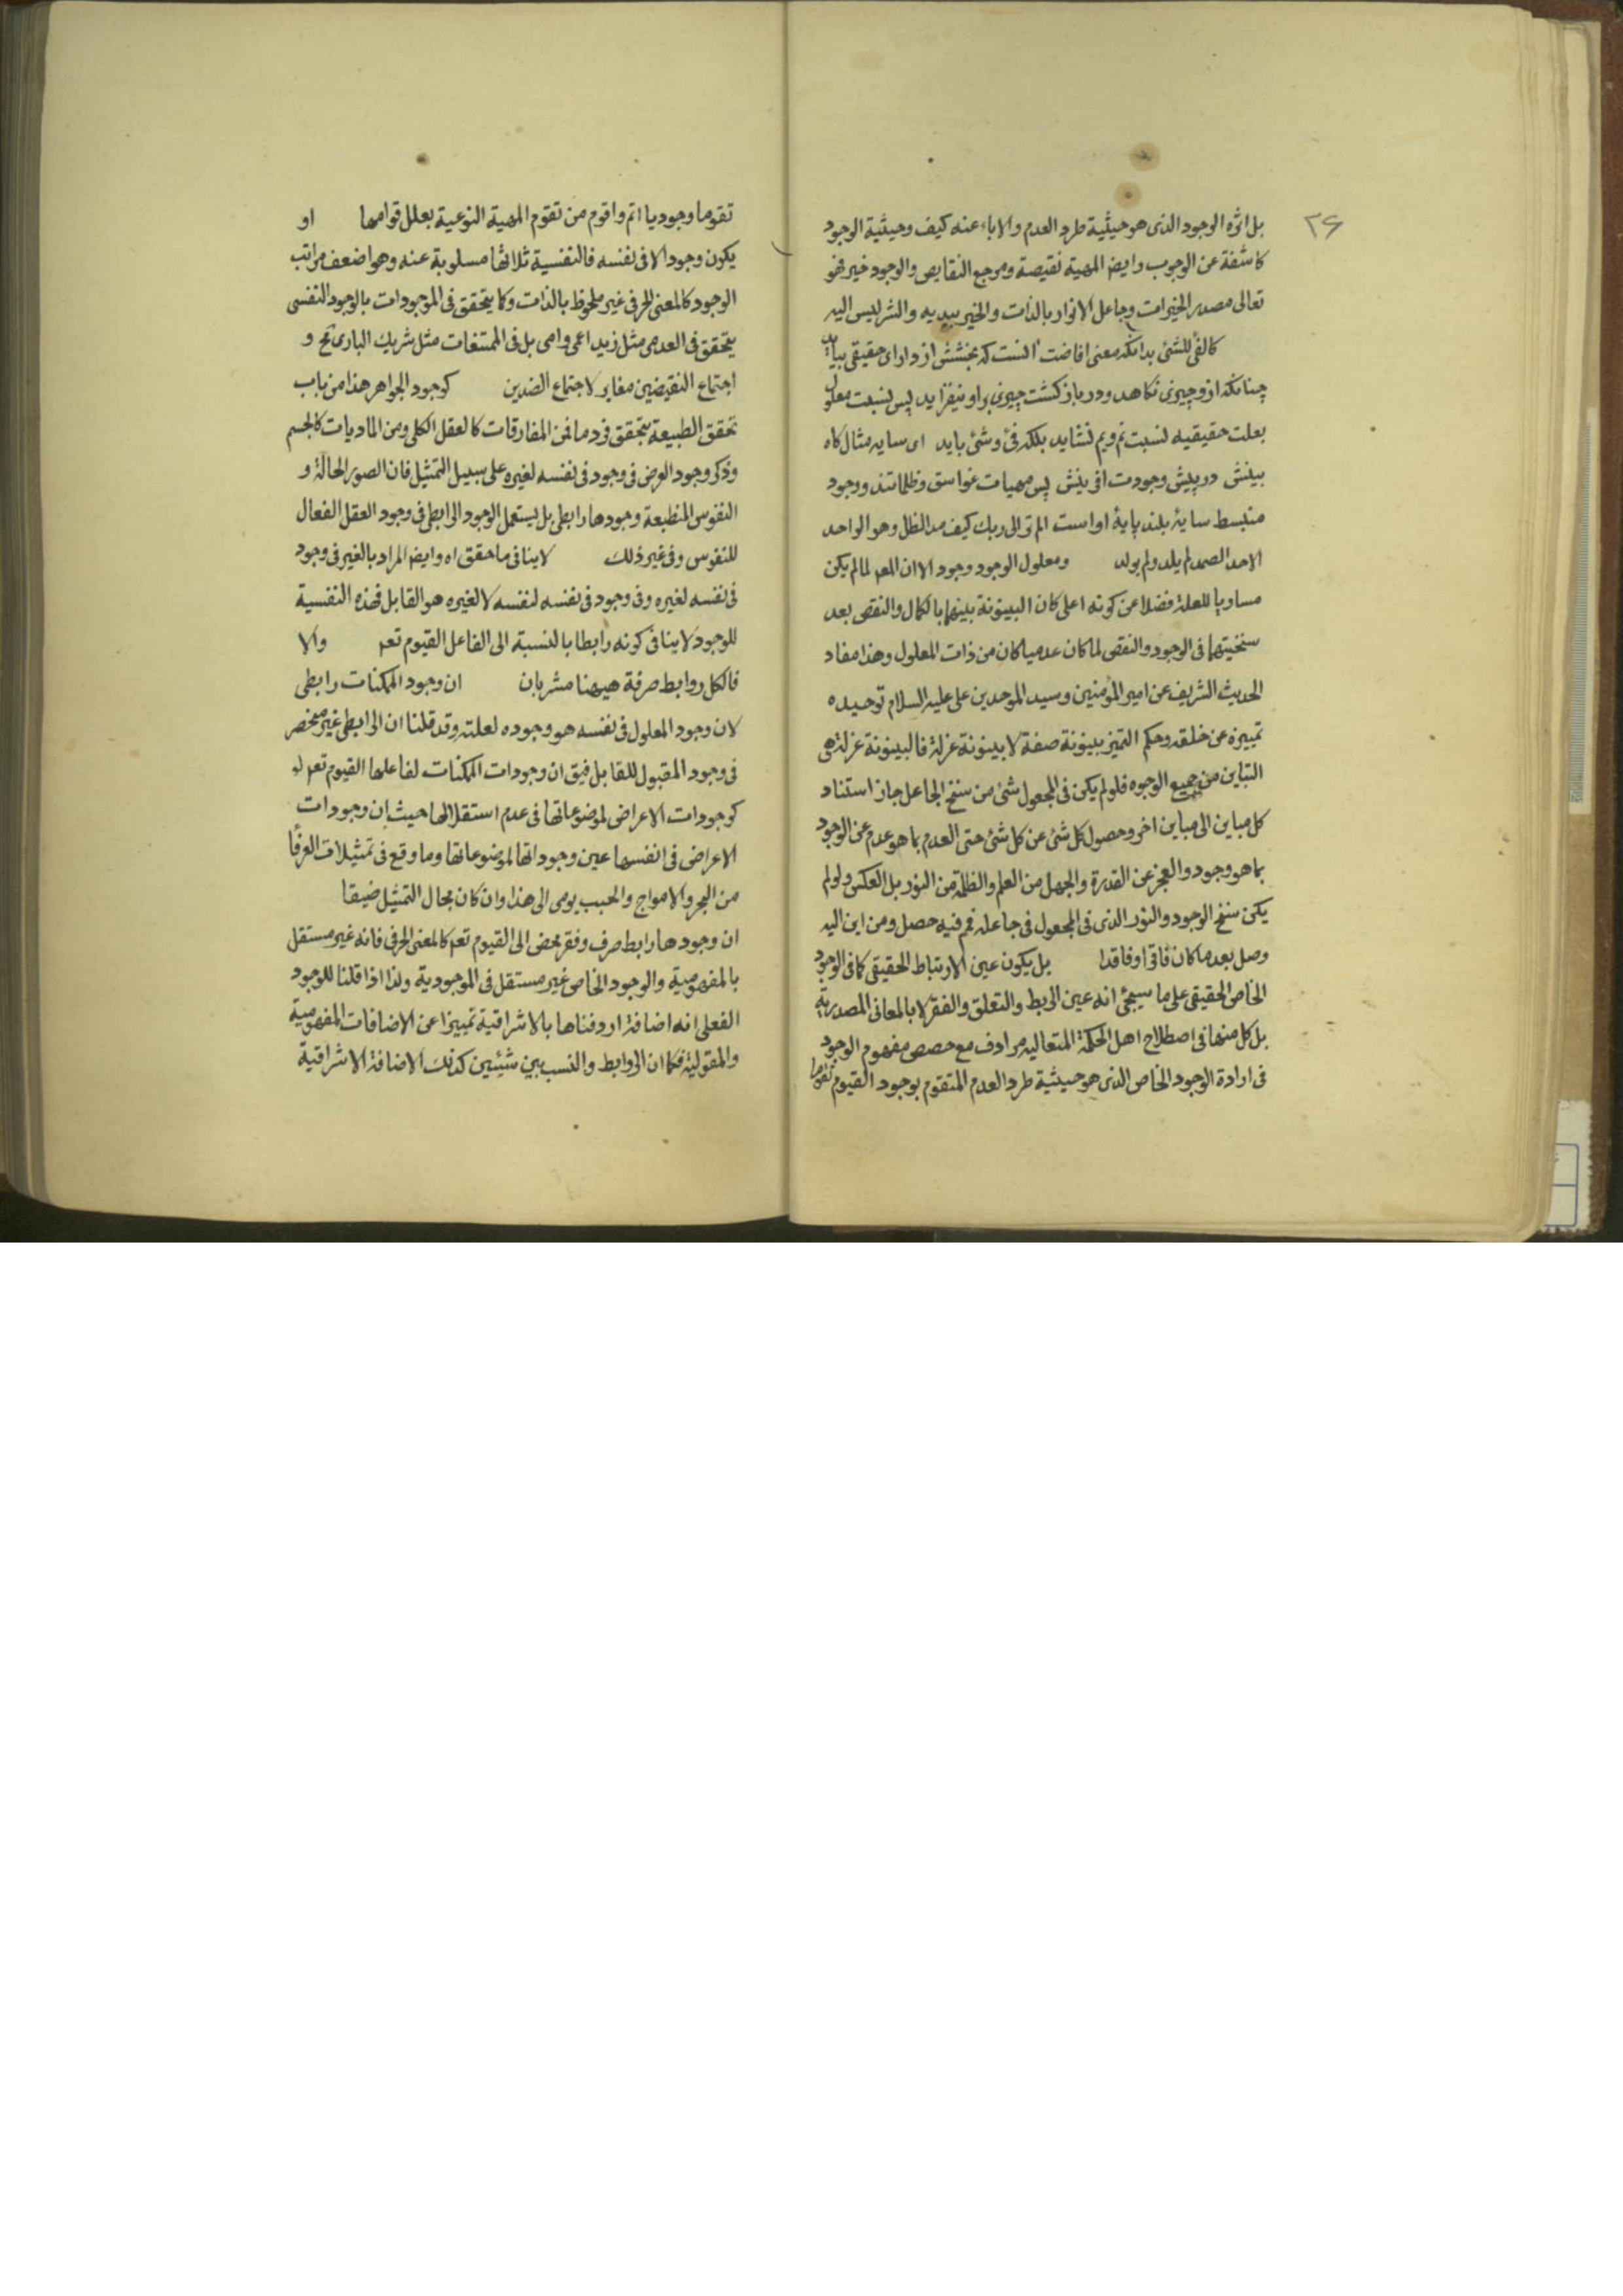 ٢۶
بل اثره الوجود الذى هو حيثية طرد العدم والاباء عنه كيف وحيثية الوجود
كاشفة عن الوجوب وايضا المهية نقيصة ومرجع النقايص والوجود خير فهو
تعالى مصدر الخيرات وجاعل الانوار بالذات والخير بيديه والشر ليس اليه
كالفئ للشئ بدانكه معنى افاضت انست كه بخشش از داراى حقيقى بيايد
چنانكه ازو چيزى نكاهد ودر باز كشت چيزى براو نيفزايد پس نسبت معلول
بعلت حقيقيه نسبت نم ويم نشايد بلكه فئ وشئ بايد اى سايه مثال كاه
بينش در پيش وجودت افرينش پس مهيات غواسق وظلماتند ووجود
منبسط سايهٔ بلند پايهٔ اواست الم تر الى ربك كيف مد الظل وهو الواحد
الاحد الصمد لم يلد ولم يولد ومعلول الوجود وجود الا ان المعـ لما لم يكن
مساويا للعلة فضلا عن كونه اعلى كان البينونة بينهما بالكمال والنقص بعد
سنخيتهما فى الوجود والنقص لما كان عدميا كان من ذات المعلول وهذا مفاد
الحديث الشريف عن امير المؤمنين وسيد الموحدين على عليه السلام توحيده
تمييزه عن خلقه وحكم التميز بينونة صفة لا بينونة عزلة فالبينونة عزلة هى
التباين من جميع الوجوه فلو لم يكن فى المجعول شئ من سنخ الجاعل جاز استناد
كل مباين الى مباين اخر وحصول كل شئ عن كل شئ حتى العدم بما هو عدم عن الوجود
بما هو وجود والعجز عن القدرة والجهل من العلم والظلمة من النور بل العكس ولو لم
يكن سنخ الوجود والنور الذى فى المجعول فى جاعله فمم فيه حصل ومن اين اليه
وصل بعد ما كان فاقرا وفاقدا بل يكون عين الارتباط الحقيقى كما فى الوجود
الخاص الحقيقى على ما سيجئ انه عين الربط والتعلق والفقر لا بالمعانى المصدرية
بل كل منها فى اصطلاح اهل الحكمة المتعاليه مرادف مع حصص مفهوم الوجود
فى ارادة الوجود الخاص الذى هو حيثية طرد العدم المتقوم بوجود القيوم تقوما
تقوما وجوديا اتم واقوم من تقوم المهية النوعية بعلل قوامها او
يكون وجودا لا فى نفسه فالنفسية ثلاثها مسلوبة عنه وهو اضعف مراتب
الوجود كالمعنى الحرفى غير ملحوظ بالذات وكما يتحقق فى الموجودات بالوجود النفسى
يتحقق فى العدمى مثل زيد اعمى وامى بل فى الممتنعات مثل شريك البارى مح و
اجتماع النقيضين مغاير لاجتماع الضدين كوجود الجواهر هذا من باب
تحقق الطبيعة بتحقق فرد ما فمن المفارقات كالعقل الكلى ومن الماديات كالجسم
وذكر وجود العرض فى وجود فى نفسه لغيره على سبيل التمثيل فان الصور الحالة و
النفوس المنطبعة وجودها رابطى بل يستعمل الوجود الرابطى فى وجود العقل الفعال
للنفوس وفى غير ذلك لا ينافى ما حقق اه وايضا المراد بالغير فى وجود
فى نفسه لغيره وفى وجود فى نفسه لنفسه لا لغيره هو القابل فهذه النفسية
للوجود لا ينافى كونه رابطا بالنسبة الى الفاعل القيوم تعـ والا
فالكل روابط صرفة هيهنا مشربان ان وجود الممكنات رابطى
لان وجود المعلول فى نفسه هو وجوده لعلته وقد قلنا ان الرابطى غير منحصر
فى وجود المقبول للقابل فيق ان وجودات الممكنات لفاعلها القيوم تعـ
كوجودات الاعراض لموضوعاتها فى عدم استقلالها حيث ان وجودات
الاعراض فى انفسها عين وجوداتها لموضوعاتها وما وقع فى تمثيلات العرفا
من البحر والامواج والحبب يومى الى هذا وان كان مجال التمثيل ضيقا
ان وجودها رابط صرف وفقر محض الى القيوم تعـ كالمعنى الحرفى فانه غير مستقل
بالمفهومية والوجود الخاص غير مستقل فى الموجودية ولذا اذا قلنا للوجود
الفعلى انه اضافة اردفناها بالاشراقية تمييزا عن الاضافات المفهومية
والمقولية فكما ان الروابط والنسب بين شيئين كذلك الاضافة الاشراقية